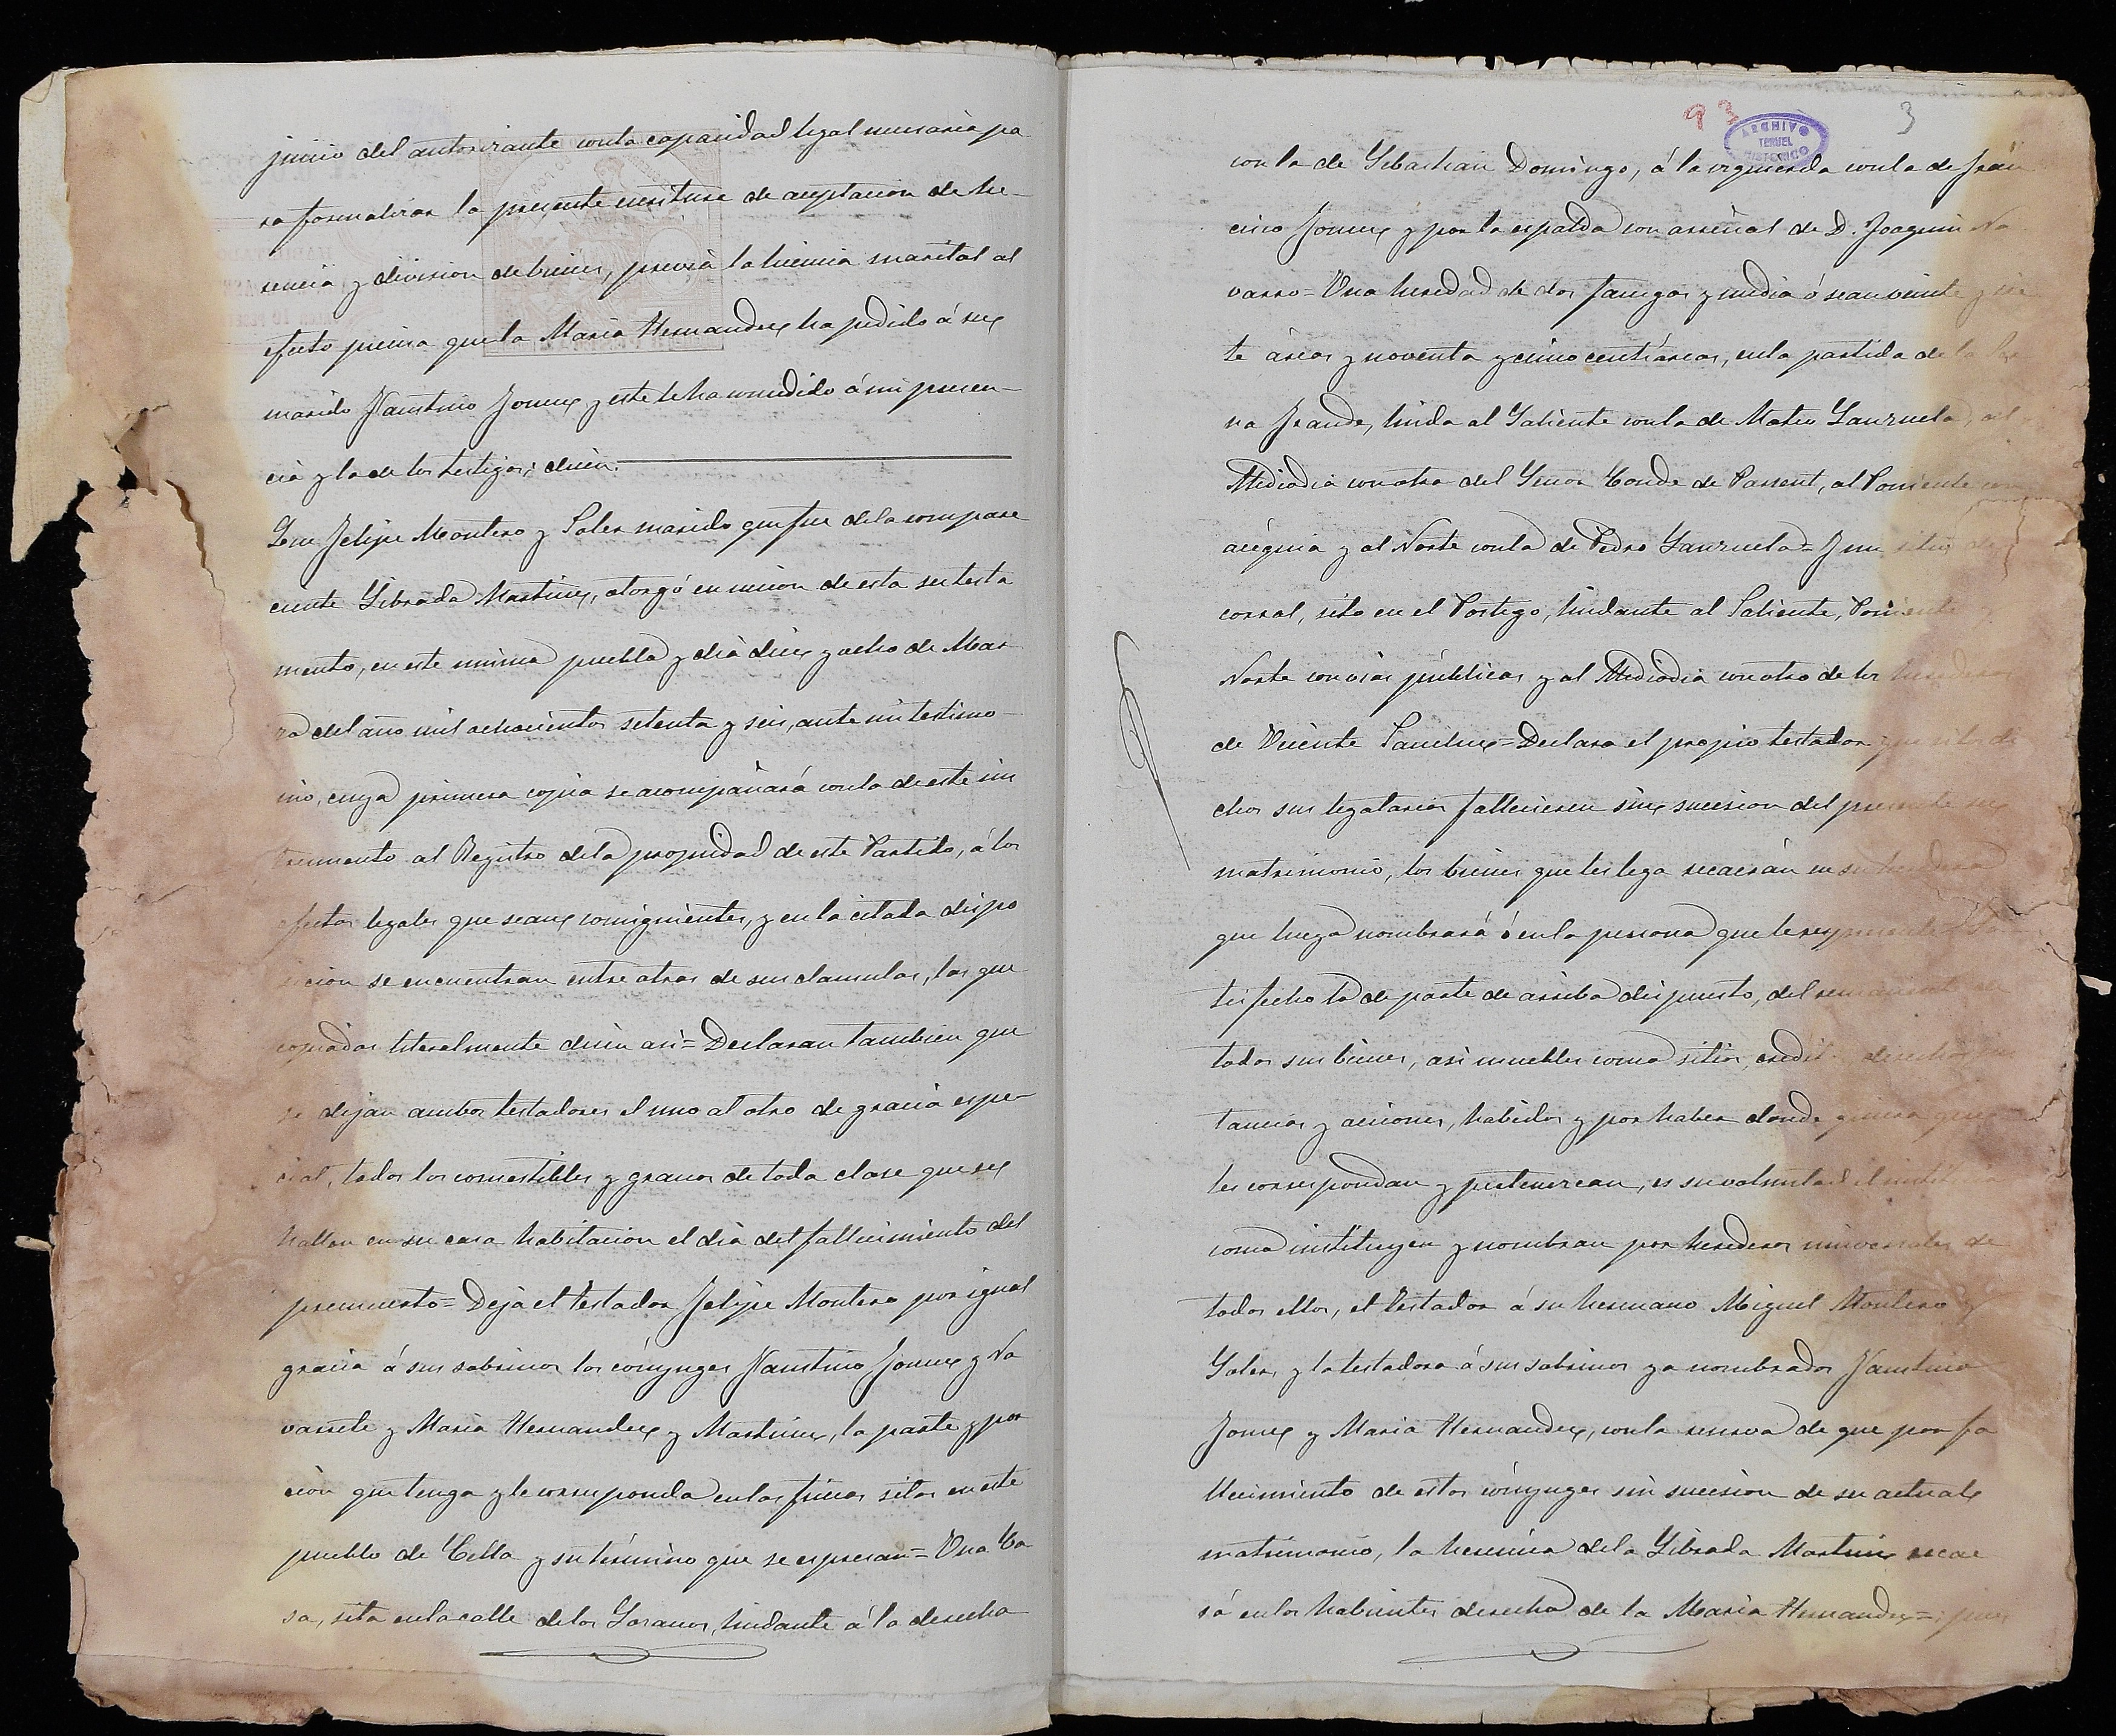 juicio del autorizante con la capacidad legal necesaria pa
ra formalizar la presente escritura de aceptacion de he-
rencia y division de bienes, previa la licencia marital al
efecto precisa que la Maria Hernandez ha pedido á su
marido Faustino Gomez y este le ha concedido á mi presen-
cia y la de los testigos; dicen:
Que Felipe Montero y Soler marido que fue de la compare
ciente Librada Martinez, otorgó en union de esta su testa
mento, en este mismo pueblo y dia diez y ocho de Mar
zo del año mil ochocientos setenta y seis, ante mi testimo-
nio, cuya primera copia se acompañará con la de este ins
trumento al Registro de la propiedad de este Partido, á los
efectos legales que sean consiguientes, y en la citada dispo
sicion se encuentran entre otras de sus clausulas, las que
copiadas literalmente dicen asi = Declaran tambien que
se dejan ambos testadores el uno al otro de gracia espe-
cial, todos los comestibles y granos de toda clase que se
hallen en su casa habitacion el dia del fallecimiento del
premuerto = Deja el testador Felipe Montero por igual
gracia á sus sobrinos los cónyuges Faustino Gomez y Na
varrete y Maria Hernandez y Martinez, la parte y por
cion que tenga y le corresponda en las fincas sitas en este
pueblo de Cella y su término que se espresan = Una Ca
sa, sita en la calle de los Loranos, lindante á la derecha
93 3
ARCHIVO
TERUEL
HISTORICO
con la de Sebastian Domingo, á la izquierda con la de Fran
cisco Gomez y por la espalda con arreñal de D. Joaquin Na
varro = Una heredad de dos fanegas y media ó sean veinte y sie
te áreas y noventa y cinco centiáreas, en la partida de la
na Grande, linda al Saliente con la de Mateo Lanzuela, al
Mediodia con otra del Señor Conde de Parsent, al Poniente con
acéquia y al Norte con la de Pedro Lanzuela = Y un sitio de
corral, sito en el Portego, lindante al Saliente, Poniente y
Norte con vias públicas y al Mediodia con otro de los herederos
de Vicente Sanchez = Declara el propio testador que si los di
chos sus legatarios fallecieren sin sucesion del presente su
matrimonio, los bienes que les lega recaerán en su heredera
que luego nombrará ó en la persona que le represente = Sa
tisfecho lo de parte de arriba dispuesto, del remanente de
todos sus bienes, asi muebles como sitios, creditos derechos
tancias y acciones, habidos y por haber donde quiera que
les correspondan y pertenezcan, es su voluntad el instituir
como instituyen y nombran por herederos universales de
todos ellos, el testador á su hermano Miguel Montero y
Soler, y la testadora á sus sobrinos ya nombrados Faustino
Gomez y Maria Hernandez, con la reserva de que por fa
llecimiento de estos cónyuges sin sucesion de su actual
matrimonio, la herencia de la Librada Martinez recae
rá en los habientes derecho de la Maria Hernandez = y pues